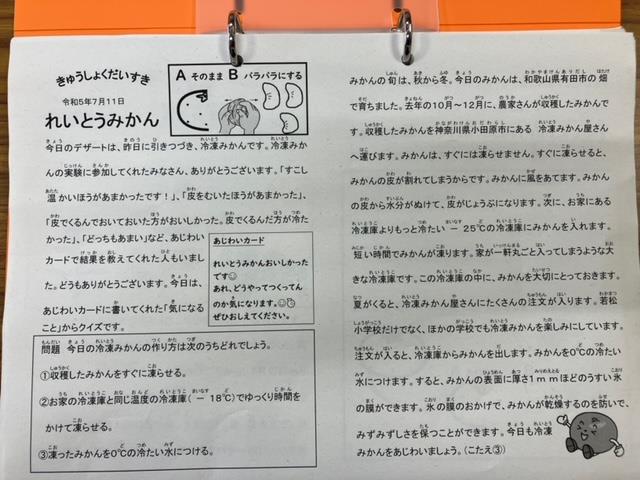 きゅうしょくだいすき
令和5年7月11日
れいとうみかん
A そのまま B バラバラにする
今日のデザートは、昨日に引きつづき、冷凍みかんです。冷凍みか
んの実験に参加してくれたみなさん、ありがとうございます。「すこし
温かいほうがあまかったです!」、「皮をむいたほうがあまかった」、
「皮でくるんでおいておいた方がおいしかった。皮でくるんだ方が冷た
かった」、「どっちもあまい」など、あじわい
カードで結果を教えてくれた人もいまし
た。どうもありがとうございます。今日は、
あじわいカードに書いてくれた「気になる
こと」からクイズです。
あじわいカード
れいとうみかんおいしかった
です
あれ、どうやってつくってん
のか気になります。
ぜひおしえてください。
問題 今日の冷凍みかんの作り方は次のうちどれでしょう。
①収穫したみかんをすぐに凍らせる。
②お家の冷凍庫と同じ温度の冷凍庫(-18℃)でゆっくり時間を
かけて凍らせる。
③凍ったみかんを0℃の冷たい水につける。
みかんの旬は、秋から冬。今日のみかんは、和歌山県有田市の畑
で育ちました。去年の10月~12月に、農家さんが収穫したみかんで
す。収穫したみかんを神奈川県小田原市にある 冷凍みかん屋さん
へ運びます。みかんは、すぐには凍らせません。すぐに凍らせると、
みかんの皮が割れてしまうからです。みかんに風をあてます。みかん
の皮から水分がぬけて、皮がじょうぶになります。次に、お家にある
冷凍庫よりもっと冷たい -25℃の冷凍庫にみかんを入れます。
短い時間でみかんが凍ります。家が一軒丸ごと入ってしまうような大
きな冷凍庫です。この冷凍庫の中に、みかんを大切にとっておきます。
夏がくると、冷凍みかん屋さんにたくさんの注文が入ります。若松
小学校だけでなく、ほかの学校でも冷凍みかんを楽しみにしています。
注文が入ると、冷凍庫からみかんを出します。みかんを0℃の冷たい
水につけます。すると、みかんの表面に厚さ1mmほどのうすい氷
の膜ができます。氷の膜のおかげで、みかんが乾燥するのを防いで、
みずみずしさを保つことができます。今日も冷凍
みかんをあじわいましょう。(こたえ③)